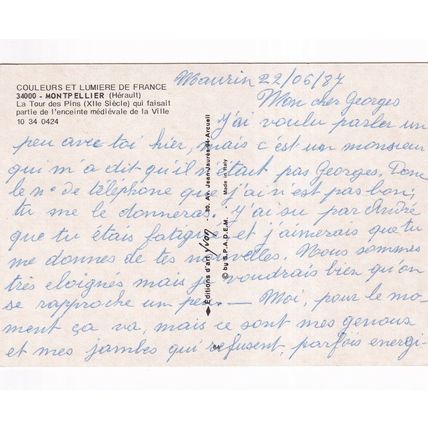 COULEURS ET LUMIERE DE FRANCE
34000 - MONTPELLIER (Hérault)
La Tour des Pins (XIIe Siècle) qui faisait
partie de l'enceinte médiévale de la Ville
10 34 0424
Maurin 22/06/87
Mon cher Georges
J'ai voulu parler un
peu avec toi hier, mais c'est un monsieur
qui m'a dit qu'il n'était pas Georges. Donc
le n° de téléphone que j'ai n'est pas bon,
tu me le donneras. J'ai su par André
que tu étais fatigué et j'aimerais que tu
me donnes de tes nouvelles. Nous sommes
très éloignés mais je voudrais bien qu'on
se rapproche un peu. — Moi, pour le mo-
ment ça va, mais ce sont mes genoux
et mes jambes qui refusent, parfois energi-
Editions d'art Yvon, 30, Av. Jean-Jaurès 94-Arcueil
© by S.P.A.D.E.M. Made in Italy